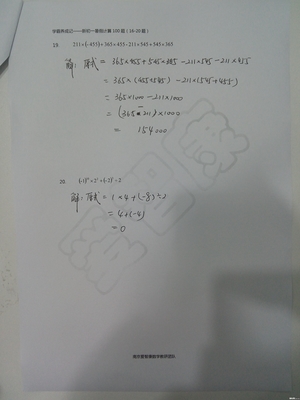 19. 211×(-455)+365×455-211×545+545×365
解:原式 = 365×455+545×365-211×545-211×455
= 365×(455+545)-211×(545+455)
= 365×1000-211×1000
= (365-211)×1000
= 154000
20. (-1)¹⁰×2²+(-2)³÷2
解:原式 = 1×4+(-8)÷2
= 4+(-4)
= 0
学智康